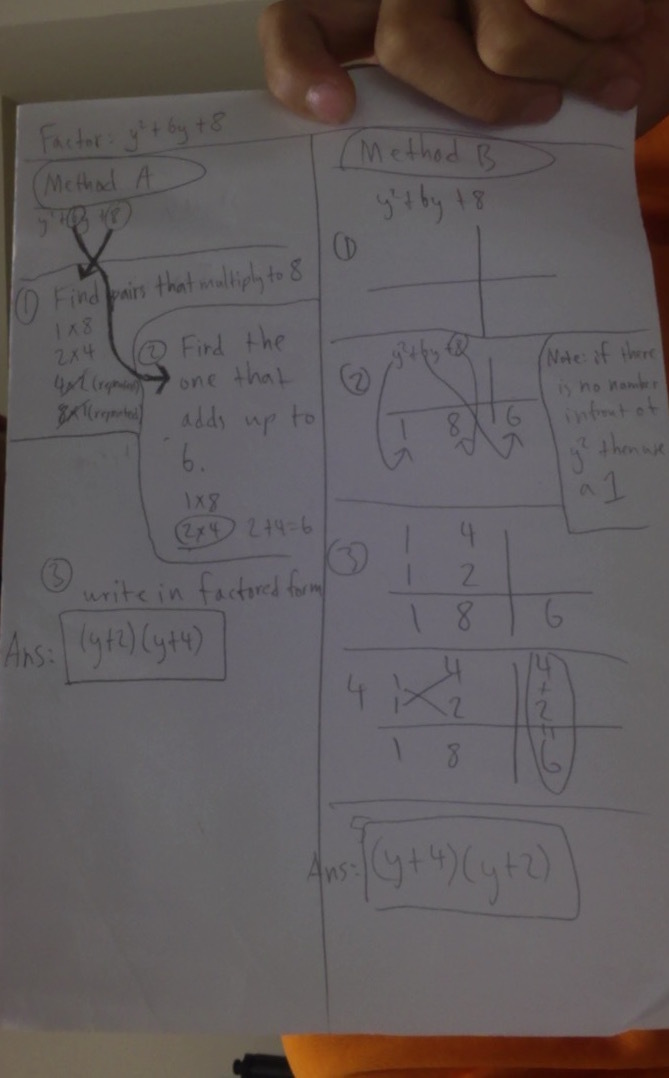 Factor: y²+6y+8
Method A
y²+6y+8
① Find pairs that multiply to 8
1x8
2x4
4x2 (repeated)
8x1 (repeated)
② Find the
one that
adds up to
6.
1x8
2x4 2+4=6
③ write in factored form
Ans: (y+2)(y+4)
Method B
y²+6y+8
①
② y²+6y+8
1 8 6
Note: if there
is no number
infront of
y² then use
a 1
③ 1 4
1 2
1 8 6
4 1 4 4
+
1 2 2
=
1 8 6
Ans: (y+4)(y+2)